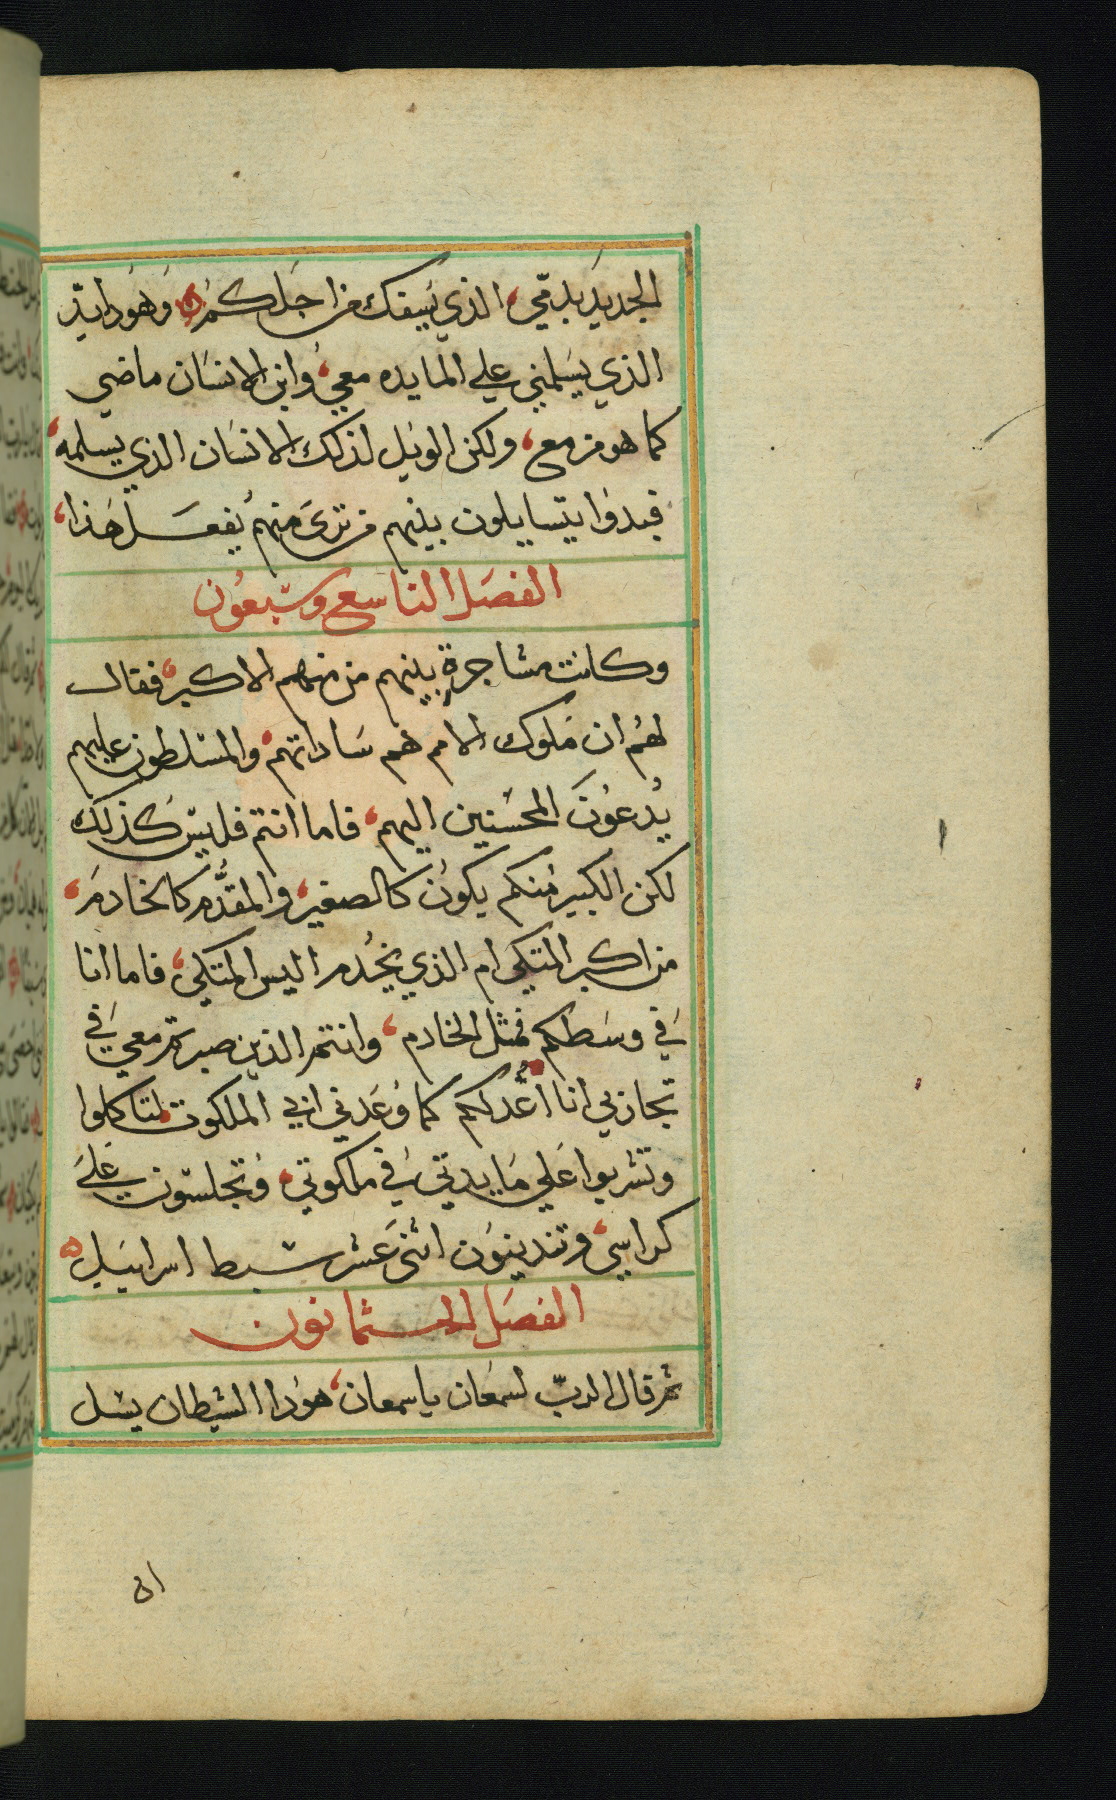 الجديد بدمي الذي يسفك من اجلكم وهودا يد
الذي يسلمني علي المايده معي وابن الانسان ماضي
كما هو مزمع ولكن الويل لذلك الانسان الذي يسلمه
فبدوا يتسايلون بينهم من تري منهم يفعل هذا
الفصل التاسع وسبعون
وكانت مشاجرة بينهم من منهم الاكبر فقال
لهم ان ملوك الامم هم ساداتهم والمسلطون عليهم
يُدعون المحسنين اليهم فاما انتم فليس كذلك
لكن الكبير منكم يكون كالصغير والمقدَّم كالخادم
من اكبر المتكي ام الذي يخدم اليس المتكي فاما انا
في وسطكم فمثل الخادم وانتم الذين صبرتم معي في
تجاربي انا اعُدلكم كما وعدني ابي الملكوت لتاكلوا
وتشربوا علي مايدتي في ملكوتي وتجلسون علي
كراسي وتدينون اثني عشر سبط اسراييل
الفصل الثمانون
ثم قال الربّ لسمعان ياسمعان هودا الشيطان يسل
٥١